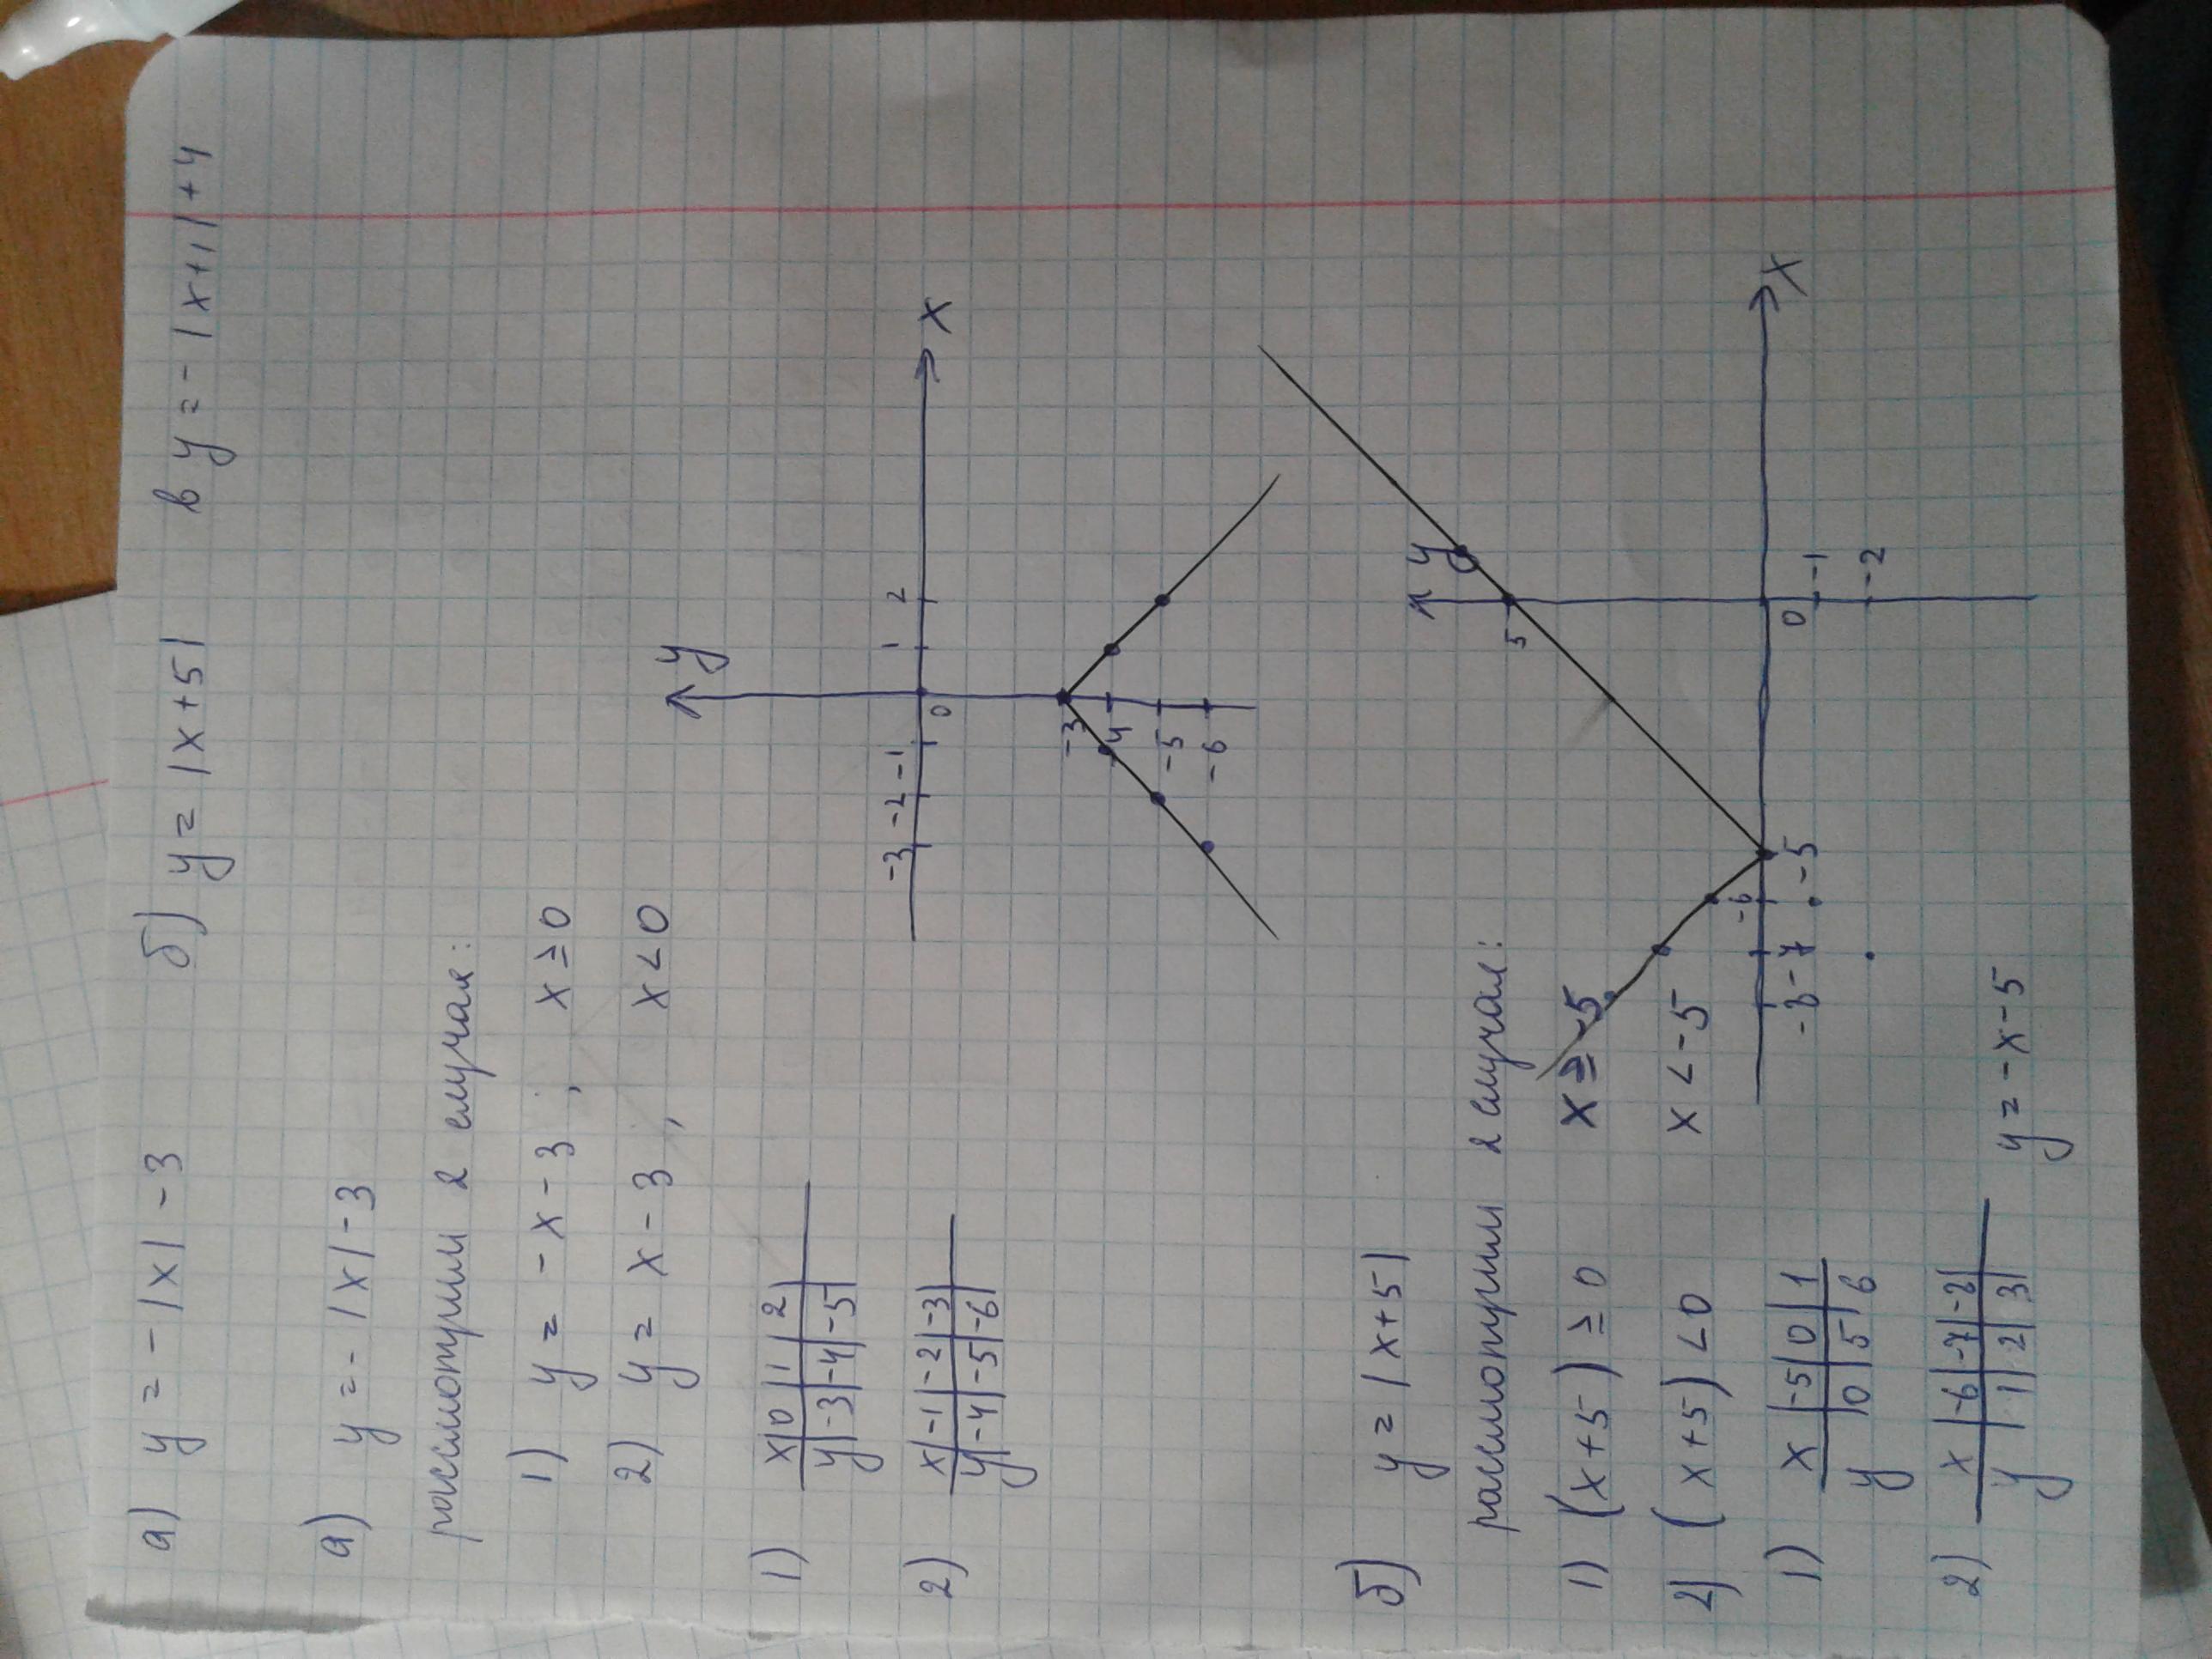 а) y = -|x| -3 б) y = |x+5| в y = -|x+1|+4
а) y = -|x|-3
рассмотрим 2 случая:
1) y = -x-3, x ≥ 0
2) y = x-3, x < 0
y
x
-3 -2 -1 0 1 2
-3
-4
-5
-6
1) x|0|1|2|
y|-3|-4|-5|
2) x|-1|-2|-3|
y|-4|-5|-6|
б) y = |x+5|
рассмотрим 2 случая:
1) (x+5) ≥ 0 x ≥ -5
2) (x+5) < 0 x < -5
y
5
x
-8 -7 -6 -5 0
-1
-2
1) x|-5|0|1
y|0|5|6
2) x|-6|-7|-8|
y|1|2|3| y = -x-5